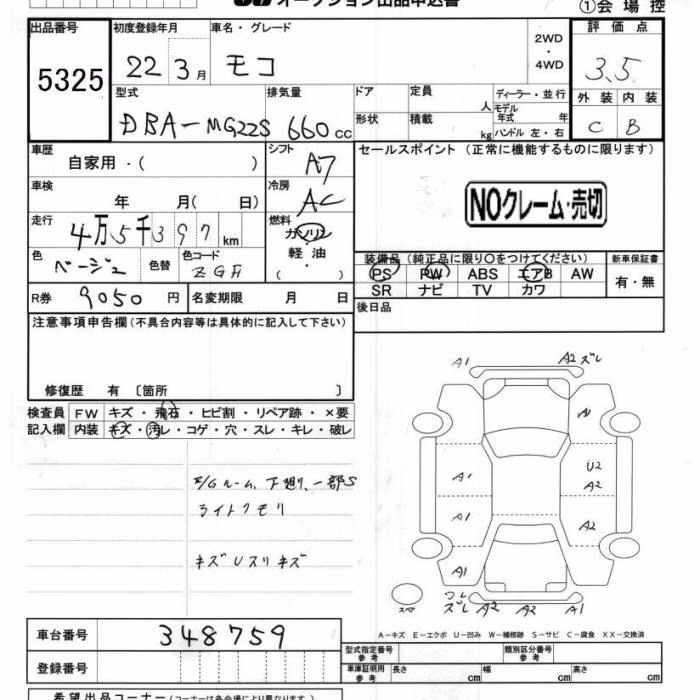 オークション出品申込書
①会場控
出品番号 5325
初度登録年月 22 3月
車名・グレード モコ
2WD・4WD
評価点 3.5
外装 C 内装 B
型式 DBA-MG22S
排気量 660cc
ドア 形状
定員 人
積載 kg
ディーラー・並行
モデル年式 年
ハンドル 左・右
車歴 自家用・( )
シフト A7
セールスポイント (正常に機能するものに限ります)
NOクレーム・売切
車検 年 月( 日)
冷房 AC
走行 4万5千397km
燃料 ガソリン・軽油・( )
色 ベージュ 色替 色コード
装備品 (純正品に限り○をつけてください)
新車保証書 有・無
PS PW ABS エアB AW
SR ナビ TV カワ
R券 9050円 名変期限 月 日
後日品
注意事項申告欄 (不具合内容等は具体的に記入して下さい)
修復歴 有 〔箇所 〕
検査員記入欄
FW キズ・飛石・ヒビ割・リペア跡・×要
内装 キズ・汚レ・コゲ・穴・スレ・キレ・破レ
E/Gルーム、下廻り、一部S
ライトクモリ
キズUスリキズ
A1 A2 ズレ
A1
A1 U2
A2
A1 A2
A1
スペア
ワレ
ズレ A2 A2 A1
A-キズ E-エクボ U-凹み W-補修跡 S-サビ C-腐食 XX-交換済
車台番号 348759
登録番号
型式指定番号 参考
類別区分番号 参考
車庫証明用 参考
長さ cm 幅 cm 高さ cm
希望出品コーナー (コーナーは各会場により異なります。)